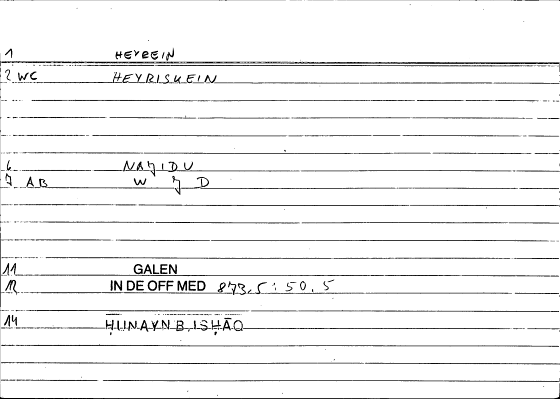 1 HEYREIN
2 WC HEYRISKEIN
6 NAJIDU
7 AB W J D
11 GALEN
12 IN DE OFF MED 873,5 : 50,5
14 ḤUNAYN B. ISḤĀQ